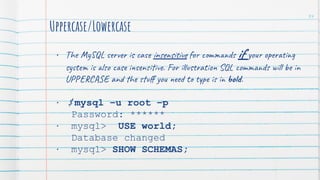 Uppercase/Lowercase
• The MySQL server is case insensitive for commands if your operating
system is also case insensitive. For illustration SQL commands will be in
UPPERCASE and the stuff you need to type is in bold.
• $mysql -u root -p
Password: ******
• mysql> USE world;
Database changed
• mysql> SHOW SCHEMAS;